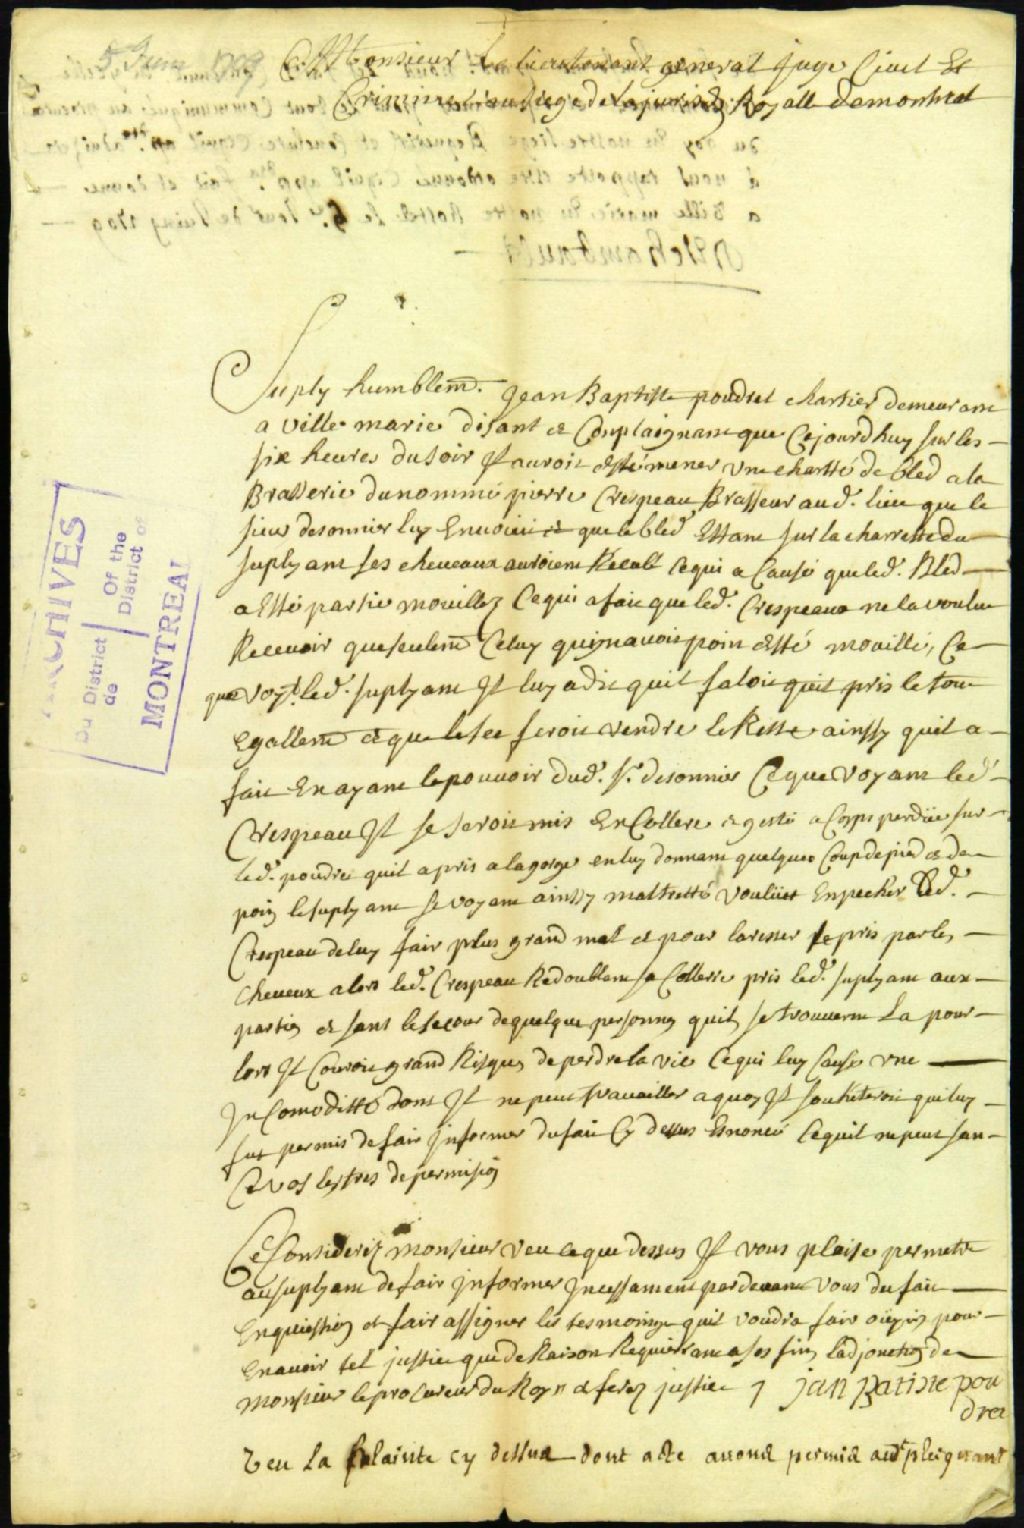 5 Juin 1709
A Monsieur Le lieutenant general Juge Civil Et
Criminel au siege de la jurisd. Royalle de montreal
Suply humblem. Jean Baptiste poudret chartier demeurant
a ville marie disant et Complaignant que Cejourdhuy sur les
six heures du soir Il auroit esté mener une chartté de bled a la
Brasserie du nommé pierre Crespeau Brasseur aud. lieu que le
sieur desonnier luy Envoioit et que le bled Estant sur la charrette du
suplyant ses chevaux auroient Reculé Ce qui a Causé que led. Bled
a Esté partie mouillez Ce qui a fait que led. Crespeau ne la voulu
Recevoir que seulem Celuy quy n'avoit poin esté mouillé, Ce
que voyt. led. suplyant Il luy a dit quil faloit quil pris le tout
Egallem et que le feroit vendre le Reste ainssy quil a
fait En ayant le pouvoir dud. Sr. desonnier Ce que voyant led.
Crespeau Il se seroit mis En Collere et getté a Corps perdüe sur
led. poudret quil a pris a la gorge en luy donnant quelques Coup de pied et de
poin le suplyant se voyant ainssy maltretté voulut Enpecher led.
Crespeau de luy fair plus grand mal et pour larester le pris par les
cheveux alors led. Crespeau Redoublant sa Collerre pris led. suplyant aux
parties et sans le secour de quelque personnes quils se trouverent La pour
lors Il Couroit grand Risques de perdre la vie Ce qui luy Cause une
InComoditté dont Il ne peut travailler a quoy Il souheteroit qui luy
fut permis de fair Informer du fait Cy dessus Ennoncé Ce quil ne peut san
Ce vos lestres de permision
Ce Consideréz monsieur veu ce que dessus Il vous plaise permetre
au suplyant de fair Informer Incessament par devant vous du fait
En question et fair assigner les tesmoins quil voudra fair oüyir pour
En avoir tel justice que de Raison Requierant a ses fins l'adjonction de
monsieur le procureur du Roy et ferez justice
jan batiste pou
dret
Veu La plainte cy dessus dont acte avons permis audt plaignant
ARCHIVES
Du District
de
Of the
District of
MONTREAL